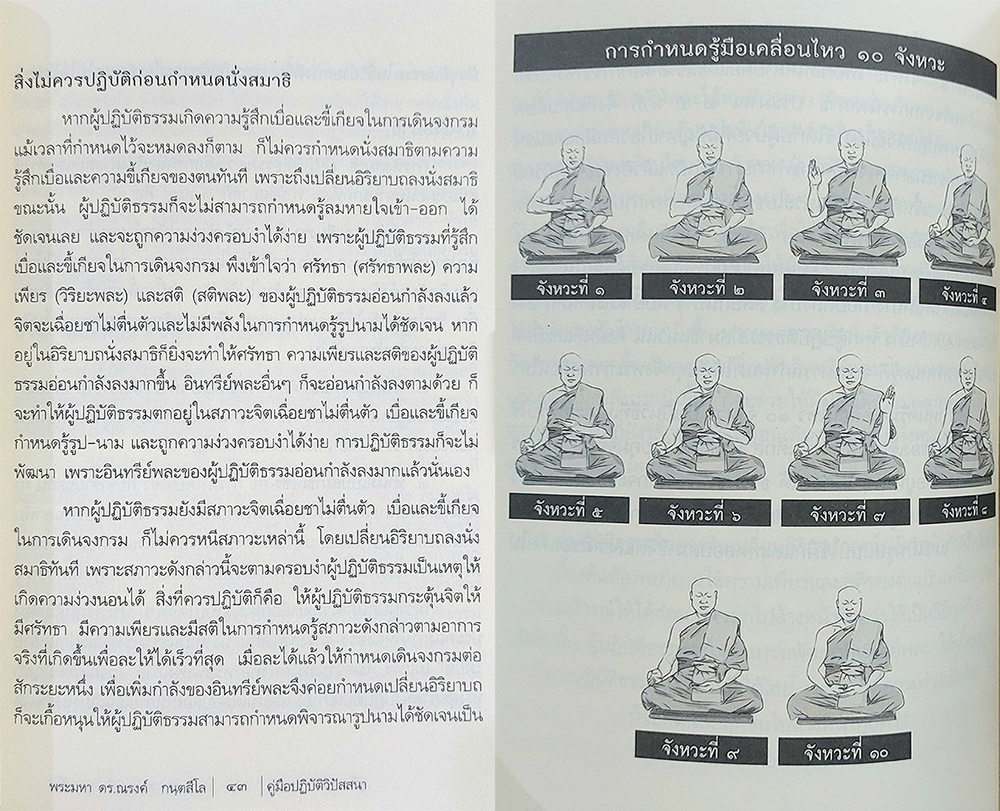 สิ่งไม่ควรปฏิบัติก่อนกำหนดนั่งสมาธิ
หากผู้ปฏิบัติธรรมเกิดความรู้สึกเบื่อและขี้เกียจในการเดินจงกรม
แม้เวลาที่กำหนดไว้จะหมดลงก็ตาม ก็ไม่ควรกำหนดนั่งสมาธิตามความ
รู้สึกเบื่อและความขี้เกียจของตนทันที เพราะถึงเปลี่ยนอิริยาบถลงนั่งสมาธิ
ขณะนั้น ผู้ปฏิบัติธรรมก็จะไม่สามารถกำหนดรู้ลมหายใจเข้า-ออก ได้
ชัดเจนเลย และจะถูกความง่วงครอบงำได้ง่าย เพราะผู้ปฏิบัติธรรมที่รู้สึก
เบื่อและขี้เกียจในการเดินจงกรม พึงเข้าใจว่า ศรัทธา (ศรัทธาพละ) ความ
เพียร (วิริยะพละ) และสติ (สติพละ) ของผู้ปฏิบัติธรรมอ่อนกำลังลงแล้ว
จิตจะเฉื่อยชาไม่ตื่นตัวและไม่มีพลังในการกำหนดรู้รูปนามได้ชัดเจน หาก
อยู่ในอิริยาบถนั่งสมาธิก็ยิ่งจะทำให้ศรัทธา ความเพียรและสติของผู้ปฏิบัติ
ธรรมอ่อนกำลังลงมากขึ้น อินทรีย์พละอื่นๆ ก็จะอ่อนกำลังลงตามด้วย ก็
จะทำให้ผู้ปฏิบัติธรรมตกอยู่ในสภาวะจิตเฉื่อยชาไม่ตื่นตัว เบื่อและขี้เกียจ
กำหนดรู้รูป-นาม และถูกความง่วงครอบงำได้ง่าย การปฏิบัติธรรมก็จะไม่
พัฒนา เพราะอินทรีย์พละของผู้ปฏิบัติธรรมอ่อนกำลังลงมากแล้วนั่นเอง
หากผู้ปฏิบัติธรรมยังมีสภาวะจิตเฉื่อยชาไม่ตื่นตัว เบื่อและขี้เกียจ
ในการเดินจงกรม ก็ไม่ควรหนีสภาวะเหล่านี้ โดยเปลี่ยนอิริยาบถลงนั่ง
สมาธิทันที เพราะสภาวะดังกล่าวนี้จะตามครอบงำผู้ปฏิบัติธรรมเป็นเหตุให้
เกิดความง่วงนอนได้ สิ่งที่ควรปฏิบัติก็คือ ให้ผู้ปฏิบัติธรรมกระตุ้นจิตให้
มีศรัทธา มีความเพียรและมีสติในการกำหนดรู้สภาวะดังกล่าวตามอาการ
จริงที่เกิดขึ้นเพื่อละให้ได้เร็วที่สุด เมื่อละได้แล้วให้กำหนดเดินจงกรมต่อ
สักระยะหนึ่ง เพื่อเพิ่มกำลังของอินทรีย์พละจึงค่อยกำหนดเปลี่ยนอิริยาบถ
ก็จะเกื้อหนุนให้ผู้ปฏิบัติธรรมสามารถกำหนดพิจารณารูปนามได้ชัดเจนเป็น
พระมหา ดร.ณรงค์ กนฺตสีโล | ๔๓ | คู่มือปฏิบัติวิปัสสนา
การกำหนดรู้มือเคลื่อนไหว ๑๐ จังหวะ
จังหวะที่ ๑ จังหวะที่ ๒ จังหวะที่ ๓ จังหวะที่ ๔
จังหวะที่ ๕ จังหวะที่ ๖ จังหวะที่ ๗ จังหวะที่ ๘
จังหวะที่ ๙ จังหวะที่ ๑๐